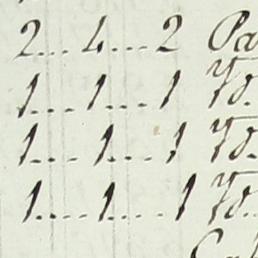 2...4...2 Pa
1...1...1 Yd.
1...1...1 Yd.
1...1...1 Yd.